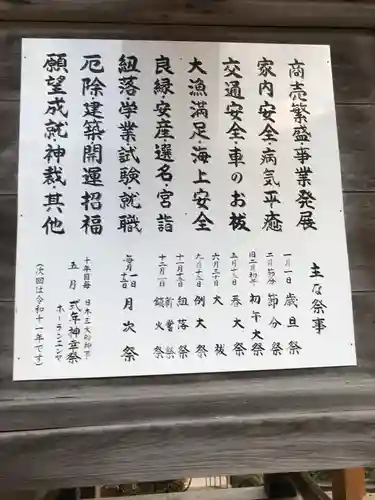 商売繁盛・事業発展
家内安全・病気平癒
交通安全・車のお祓
大漁満足・海上安全
良縁・安産・選名・宮詣
紐落学業試験・就職
厄除建築開運招福
願望成就神裁其他
主な祭事
一月一日 歳旦祭
二月節分 節分祭
旧二月初午 初午大祭
五月十三日 春大祭
六月三十日 大祓
九月十三日 例大祭
十一月十五日 紐落祭
新嘗祭
十二月一日 鎮火祭
毎月一日
十五日
月次祭
十年目毎
五月
日本三大船神事
式年神幸祭
ホーランエンヤ
(次回は令和十一年です)